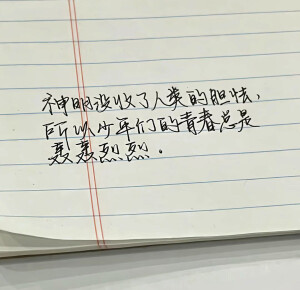 神明没收了人类的胆怯，
所以少年们的青春总是
轰轰烈烈。